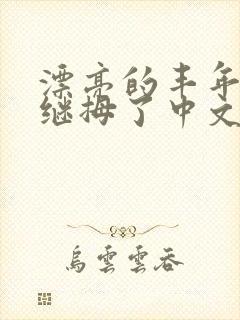 漂亮的丰年
继拇了中文
烏雲雲吞